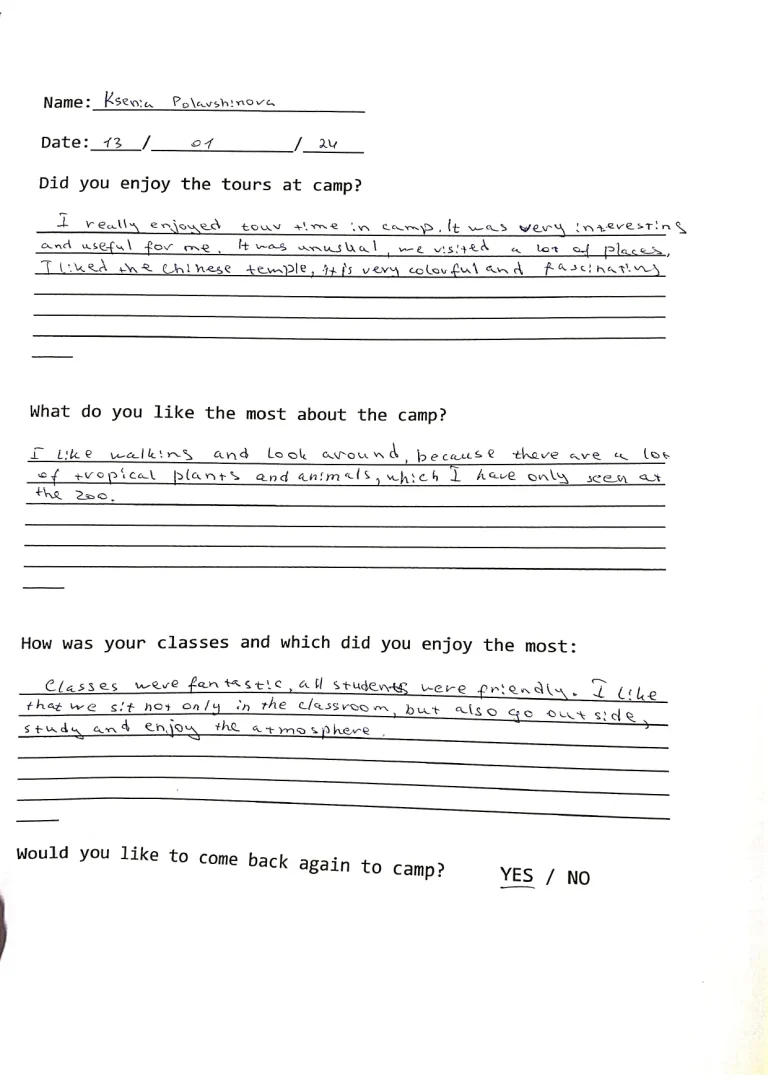 Name: Ksenia Polavshinova
Date: 13 / 01 / 24
Did you enjoy the tours at camp?
I really enjoyed tour time in camp. It was very interesting
and useful for me. It was unusual, we visited a lot of places,
I liked the Chinese temple, it is very colourful and fascinating
What do you like the most about the camp?
I like walking and look around, because there are a lot
of tropical plants and animals, which I have only seen at
the zoo.
How was your classes and which did you enjoy the most:
Classes were fantastic, all students were friendly. I like
that we sit not only in the classroom, but also go outside,
study and enjoy the atmosphere.
Would you like to come back again to camp? YES / NO